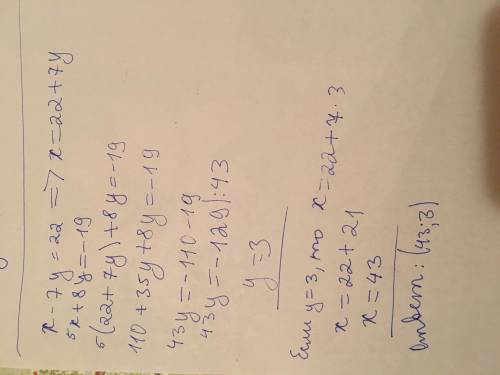 x - 7y = 22 => x = 22 + 7y
5x + 8y = -19
5(22 + 7y) + 8y = -19
110 + 35y + 8y = -19
43y = -110 - 19
43y = -129 | : 43
y = 3
Если y = 3, то x = 22 + 7 · 3
x = 22 + 21
x = 43
Ответ: (43; 3)